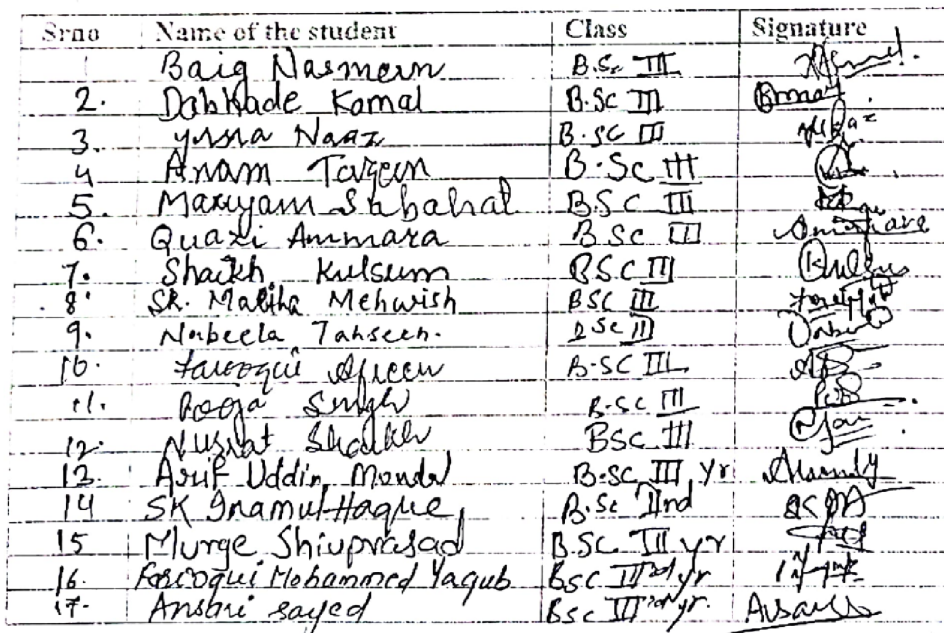 Srno Name of the student Class Signature
1 Baig Nasmeen B.Sc III
2. Dabhade Komal B.SC III
3. Yusra Naaz B.SC III
4 Anam Tazeen B.Sc III
5. Maryam Sabahat B.S.C III
6. Quazi Ammara B.SC III
7. Shaikh Kulsum B.S.C III
8. SK. Maliha Mehwish BSC III
9. Nabeela Tahseen. BSC III
10. Farooqui Afreen B-SC III
11. Pooja Singh B.SC III
12. Nusrat Shaikh BSC III
13. Arif Uddin Mondal B.SC III yr
14 SK Inamul Haque B.Sc IInd
15 Murge Shivprasad B.SC III yr
16. Farooqui Mohammed Yaqub BSC IIIrd yr
17. Ansari sayed BSC IIIrd yr.